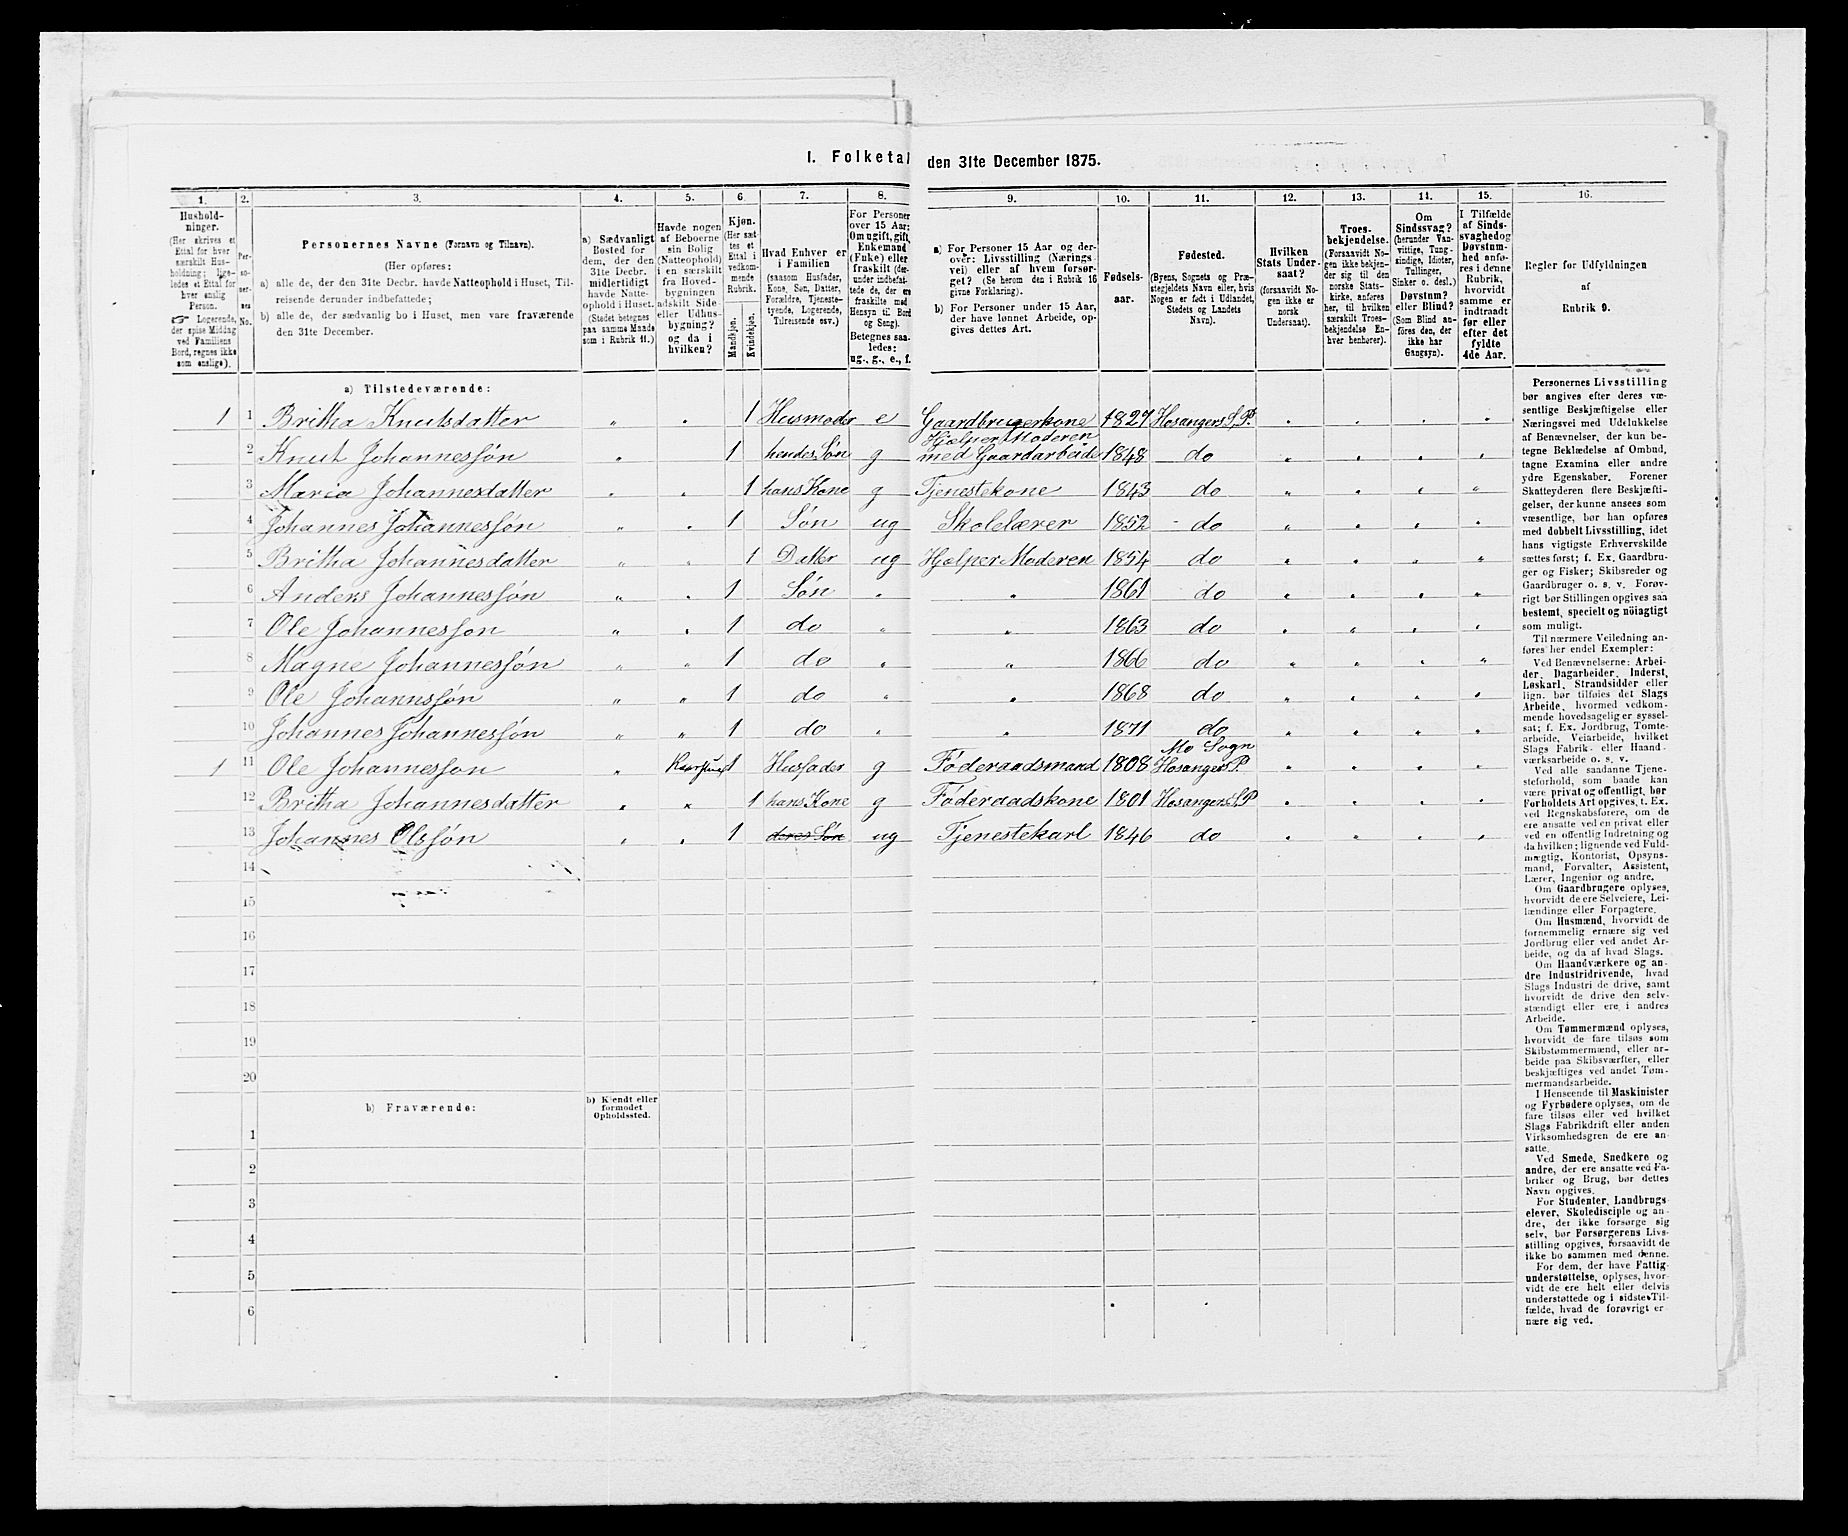 I. Folketal den 31te December 1875.
1. 2. 3. 4. 5. 6. 7. 8. 9. 10. 11. 12. 13. 14. 15. 16.
Hushold-
ninger.
(Her skrives et
Ettal for hver
særskilt Hus-
holdning; lige-
ledes et Ettal for
hver enslig
Person.
☞ Logerende,
der spise Middag
ved Familiens
Bord, regnes ikke
som enslige).
Per-
so-
ner-
nes
No.
Personernes Navne (Fornavn og Tilnavn).
(Her opføres:
a) alle de, der den 31te Decbr. havde Natteophold i Huset, Til-
reisende derunder indbefattede;
b) alle de, der sædvanlig bo i Huset, men vare fraværende
den 31te December.
a) Sædvanligt
Bosted for
dem, der den
31te Decbr.
midlertidigt
havde Natte-
ophold i Huset.
(Stedet betegnes
paa samme Maade
som i Rubrik 11.)
Havde nogen
af Beboerne
sin Bolig
(Natteophold)
i en særskilt
fra Hoved-
bygningen
adskilt Side
eller Udhus-
bygning?
og da i
hvilken?
Kjøn.
(Her sæt-
tes et
Ettal i
vedkom-
mende
Rubrik.
Mandkjøn.
Kvindekjøn.
Hvad Enhver er
i Familien
(saasom Husfader,
Kone, Søn, Datter,
Forældre, Tjeneste-
tyende, Logerende,
Tilreisende osv.)
For Personer
over 15 Aar:
Om ugift, gift,
Enkemand
(Enke) eller
fraskilt (der-
under indbefat-
tede de, der ere
fraskilte med
Hensyn til Bord
og Seng).
Betegnes saa-
ledes:
ug., g., e., f.
a) For Personer 15 Aar og der-
over: Livsstilling (Nærings-
vei) eller af hvem forsør-
get? (Se herom den i Rubrik 16
givne Forklaring).
b) For Personer under 15 Aar,
der have lønnet Arbeide, op-
gives dettes Art.
Fødsels-
aar.
Fødested.
(Byens, Sognets og Præ-
stegjeldets Navn eller, hvis
Nogen er født i Udlandet,
Stedets og Landets
Navn).
Hvilken
Stats Under-
saat?
(forsaavidt No-
gen ikke er
norsk
Undersaat).
Troes-
bekjendelse.
(Forsaavidt No-
gen ikke bekjen-
der sig til den
norske Stats-
kirke, anføres
her, til hvilken
særskilt Troes-
bekjendelse En-
hver henhører).
Om
Sindssvag?
(herunder Van-
vittige, Tung-
sindige, Idioter,
Tullinger,
Sinker o. desl.)
Døvstum?
eller Blind?
(Som Blind an-
føres den, der
ikke har
Gangsyn).
I Tilfælde
af Sinds-
svaghed og
Døvstum-
hed anfø-
res i denne
Rubrik,
hvorvidt
samme er
indtraadt
før eller
efter det
fyldte
4de Aar.
Regler for Udfyldningen
af
Rubrik 9.
a) Tilstedeværende:
1 1 Britha Knutsdatter „ „ 1 Husmoder e Gaardbrugerkone 1827 Hosangers S. P.
2 Knut Johannessøn „ 1 hendes Søn g Hjælper Moderen med Gaardarbeide 1848 do
3 Maria Johannesdatter „ „ 1 hans Kone g Tjenestekone 1843 do
4 Johannes Johannessøn „ „ 1 Søn ug Skolelærer 1852 do
5 Britha Johannesdatter „ „ 1 Datter ug Hjælper Moderen 1854 do
6 Anders Johannessøn „ „ 1 Søn „ „ 1861 do
7 Ole Johannessøn „ „ 1 do „ „ 1863 do
8 Magne Johannessøn „ „ 1 do „ „ 1866 do
9 Ole Johannssøn „ „ 1 do „ „ 1868 do
10 Johannes Johannessøn „ „ 1 do „ „ 1871 do
1 11 Ole Johannessøn „ 1 Husfader g Føderaadsmand 1808 Mo Sogn Hosangers P.
12 Britha Johannesdatter „ „ 1 hans Kone g Føderaadskone 1801 Hosangers S. P
13 Johannes Olssøn „ „ 1 deres Søn ug Tjenestekarl 1846 do
14
15
16
17
18
19
20
b) Fraværende:
b) Kjendt eller
formodet
Opholdssted.
1
2
3
4
5
6
Personernes Livsstilling
bør angives efter deres væ-
sentlige Beskjæftigelse eller
Næringsvei med Udelukkelse
af Benævnelser, der kun be-
tegne Beklædelse af Ombud,
tagne Examina eller andre
ydre Egenskaber. Forener
Skatteyderen flere Beskjæfti-
gelser, der kunne ansees som
væsentlige, bør han opføres
med dobbelt Livsstilling, idet
hans vigtigste Erhvervskilde
sættes først; f. Ex. Gaardbru-
ger og Fisker; Skibsreder og
Gaardbruger o. s. v. Forøv-
rigt bør Stillingen opgives saa
bestemt, specielt og nøiagtigt
som muligt.
Til nærmere Veiledning an-
føres her endel Exempler:
Ved Benævnelserne: Arbei-
der, Dagarbeider, Inderst,
Løskarl, Strandsidder eller
lign. bør tilføies det Slags
Arbeide, hvormed vedkom-
mende hovedsagelig er syssel-
sat; f. Ex. Jordbrug, Tomte-
arbeide, Veiarbeide, hvilket
Slags Fabrik- eller Haand-
værksarbeide o. s. v.
Ved alle saadanne Tjene-
steforhold, som baade kan
være privat og offentligt, bør
Forholdets Art opgives, t. Ex.
ved Regnskabsførere, om de
ere ansatte ved en privat eller
ved en offentlig Indretning og
da hvilken; lignende ved Fuld-
mægtig, Kontorist, Opsyns-
mand, Forvalter, Assistent,
Lærer, Ingeniør og andre.
Om Gaardbrugere oplyses,
hvorvidt de ere Selveiere, Lei-
lændinge eller Forpagtere.
Om Husmænd, hvorvidt de
fornemmelig ernære sig ved
Jordbrug eller ved andet Ar-
beide, og da af hvad Slags.
Om Haandværkere og an-
dre Industridrivende, hvad
Slags Industri de drive, samt
hvorvidt de drive den selv-
stændigt eller ere i andres
Arbeide.
Om Tømmermænd oplyses,
hvorvidt de fare tilsøs som
Skibstømmermænd, eller ar-
beide paa Skibsværfter, eller
beskjæftiges ved andet Tøm-
mermandsarbeide.
I Henseende til Maskinister
og Fyrbødere oplyses, om de
fare tilsøs eller ved hvilket
Slags Fabrikdrift eller anden
Virksomhedsgren de ere an-
satte.
Ved Smede, Snedkere og
andre, der ere ansatte ved Fa-
briker og Brug, bør dettes
Navn opgives.
For Studenter, Landbrugs-
elever, Skoledisciple og an-
dre, der ikke forsørge sig
selv, bør Forsørgerens Livs-
stilling opgives, forsaavidt de
ikke bo sammen med denne.
For dem, der have Fattig-
understøttelse, oplyses, hvor-
vidt de ere helt eller delvis
understøttede og i sidste Til-
fælde, hvad de forøvrigt er-
nære sig ved.